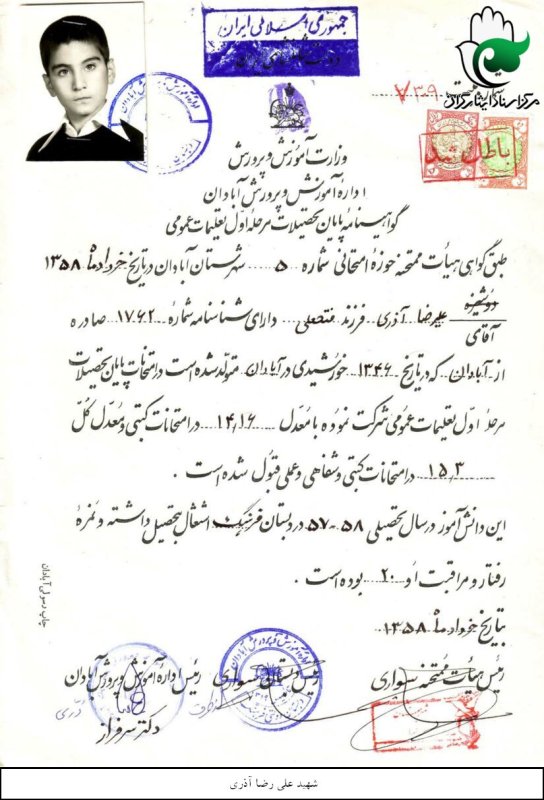 جمهوری اسلامی ایران
مرکز اسناد ایثارگران
۷۳۰۹
باطل شد
وزارت آموزش و پرورش
ادارهٔ آموزش و پرورش آبادان
گواهینامهٔ پایان تحصیلات مرحلهٔ اول تعلیمات عمومی
طبق گواهی هیأت ممتحنه حوزهٔ امتحانی شماره ۵ شهرستان آبادان در تاریخ خرداد ماه ۱۳۵۸
دوشیزه
آقای علیرضا آذری فرزند دارای شناسنامه شمارهٔ ۱۷۶۲ صادره
از آبادان که در تاریخ ۱۳۴۶ خورشیدی در آبادان متولد شده است در امتحانات پایان تحصیلات
مرحلهٔ اول تعلیمات عمومی شرکت نموده با معدل ۱۴/۱۶ در امتحانات کتبی و معدل کل
۱۵/۳ در امتحانات کتبی و شفاهی و عملی قبول شده است.
این دانش‌آموز در سال تحصیلی ۵۸-۵۷ در دبستان فرهنگ اشتغال بتحصیل داشته و نمرهٔ
رفتار و مراقبت او ۲۰ بوده است.
بتاریخ خرداد ماه ۱۳۵۸
رئیس هیأت ممتحنه سواری
رئیس دبستان سواری
رئیس ادارهٔ آموزش و پرورش آبادان
دکتر سرفراز
شهید علی رضا آذری